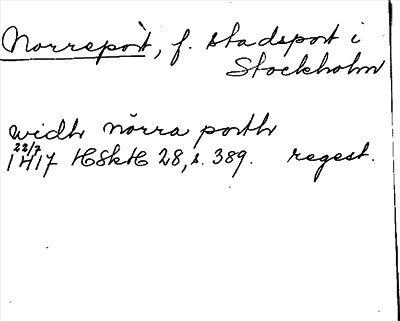 Norreport, f. stadsport i
Stockholm
widh nörra porth
22/7
1417 HSkH 28, s. 389. regest.